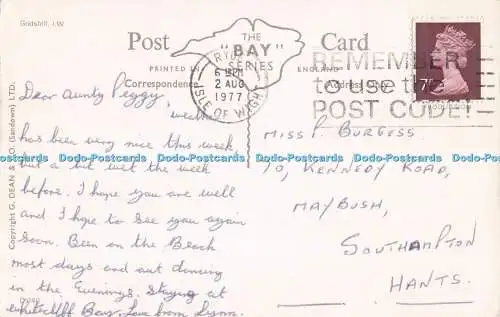 Godshill, I.W.
Post
THE
"BAY"
SERIES
Card
PRINTED IN
ENGLAND
Correspondence
Address Only
RYDE
6 PM
2 AUG
1977
ISLE OF WIGHT
REMEMBER
to use the
POST CODE!
7P
Dear Aunty Peggy,
weather
has been very nice this week
but a bit wet the week
before. I hope you are well
and I hope to see you again
soon. Been on the Beach
most days and out dancing
in the Evenings. Staying at
Whitecliff Bay. Love from Lynn.
MISS P BURGESS
70, KENNEDY ROAD,
MAYBUSH,
SOUTHAMPTON
HANTS.
Copyright G. DEAN & CO. (Sandown) LTD.
Dodo-Postcards Dodo-Postcards Dodo-Postcards Dodo-Postcards Dodo-Postcards Dodo-Postcards